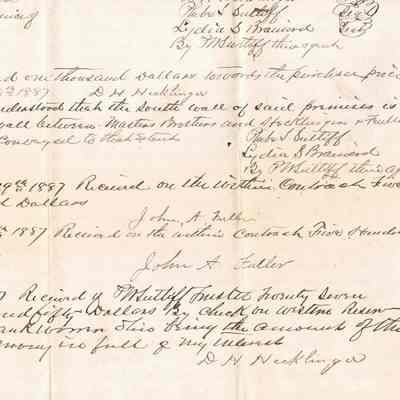 Phebe L Sutliff
Lydia S Brainard
By P M Sutliff their agent
d one thousand Dollars towards the purchase price
1887. D H Hecklinger
nderstood that the south wall of said premises is
wall between Masters Brothers and Hecklinger & Fuller
conveyed to that extend
Phebe L Sutliff
Lydia S Brainard
By P M Sutliff their ag
29th 1887 Received on the within Contract Five
d Dollars
John A Fuller
1887 Received on the within Contract Five Hund
John A Fuller
7 Received of P M Sutliff Trustee Twenty Seven
and fifty Dollars By check on Western Reser
ank Warren Ohio being the amount of the
owing in full of my interest
D H Hecklinger